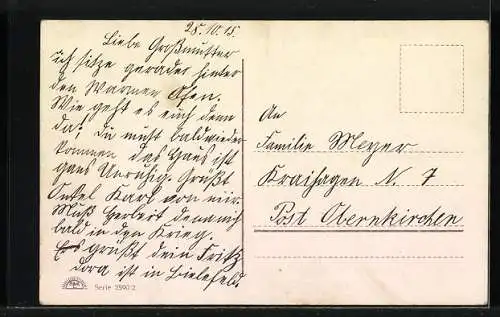 25.10.15.
Liebe Großmutter
ich sitze gerade hinter
den Warmen Ofen.
Wie geht es euch denn
da? Du mußt bald wieder
kommen das Haus ist
ganz Unruhig. Grüßt
Onkel Karl von mir.
Muß Herbert denn
bald in den Krieg.
Es grüßt dein Fritz
dora ist in Bielefeld.
An
Familie Meyer
Krainhagen N. 7
Post Obernkirchen
Serie 2590/2